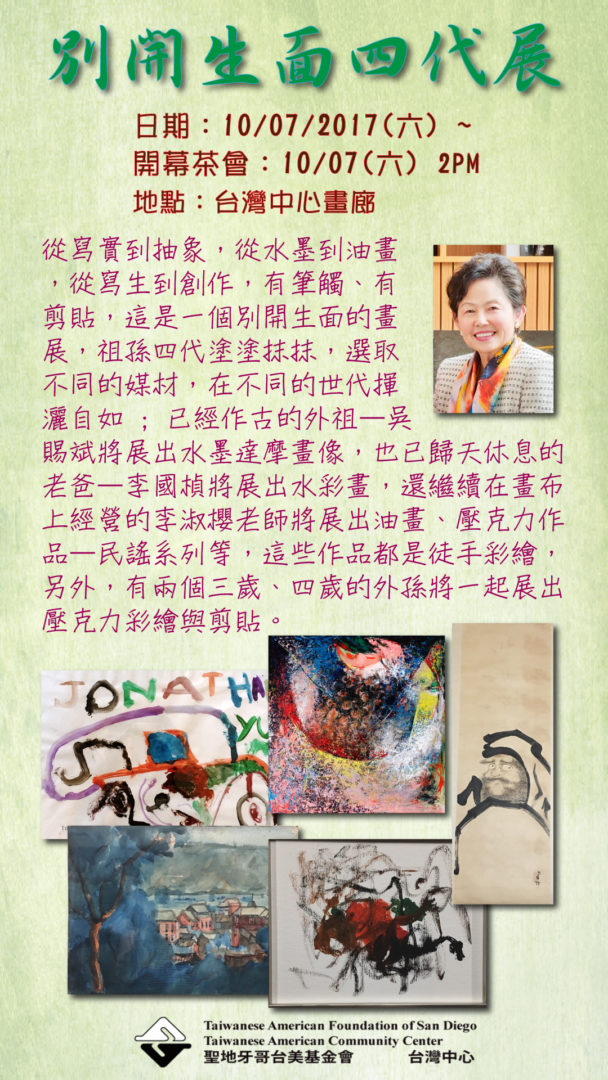 別開生面四代展
日期：10/07/2017(六) ~
開幕茶會：10/07(六) 2PM
地點：台灣中心畫廊
從寫實到抽象，從水墨到油畫
，從寫生到創作，有筆觸、有
剪貼，這是一個別開生面的畫
展，祖孫四代塗塗抹抹，選取
不同的媒材，在不同的世代揮
灑自如 ; 已經作古的外祖—吳
賜斌將展出水墨達摩畫像，也已歸天休息的
老爸—李國楨將展出水彩畫，還繼續在畫布
上經營的李淑櫻老師將展出油畫、壓克力作
品—民謠系列等，這些作品都是徒手彩繪，
另外，有兩個三歲、四歲的外孫將一起展出
壓克力彩繪與剪貼。
JONATHA
YU
Taiwanese American Foundation of San Diego
Taiwanese American Community Center
聖地牙哥台美基金會 台灣中心